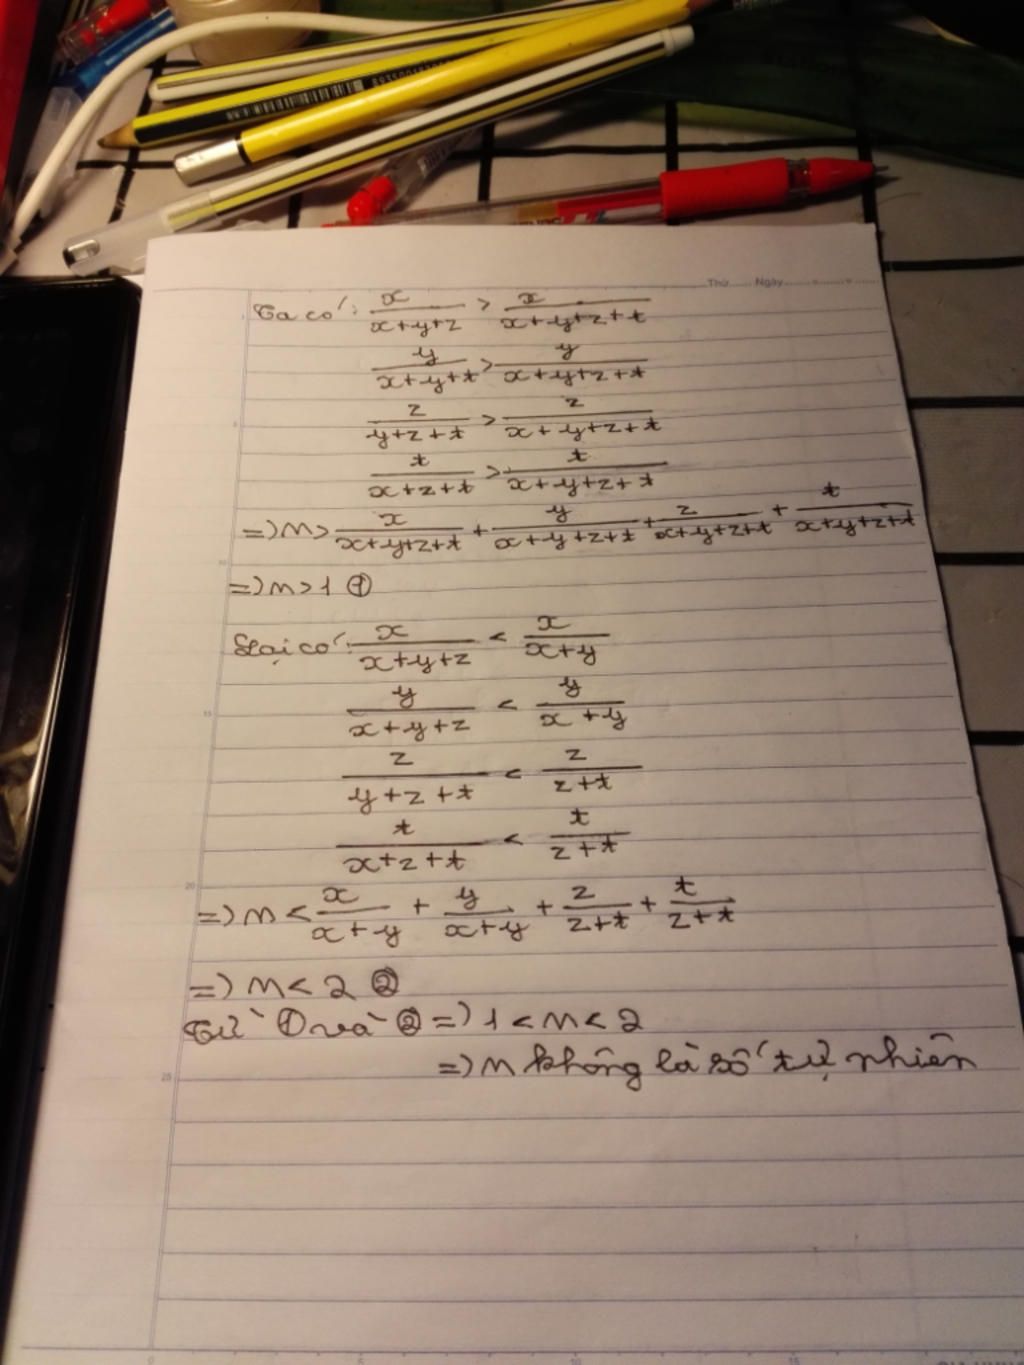 Thứ ...... Ngày ......
Ta có: x/(x+y+z) > x/(x+y+z+t)
y/(x+y+t) > y/(x+y+z+t)
z/(y+z+t) > z/(x+y+z+t)
t/(x+z+t) > t/(x+y+z+t)
=> M > x/(x+y+z+t) + y/(x+y+z+t) + z/(x+y+z+t) + t/(x+y+z+t)
=> M > 1 ①
Lại có: x/(x+y+z) < x/(x+y)
y/(x+y+z) < y/(x+y)
z/(y+z+t) < z/(z+t)
t/(x+z+t) < t/(z+t)
=> M < x/(x+y) + y/(x+y) + z/(z+t) + t/(z+t)
=> M < 2 ②
Từ ① và ② => 1 < M < 2
=> M không là số tự nhiên